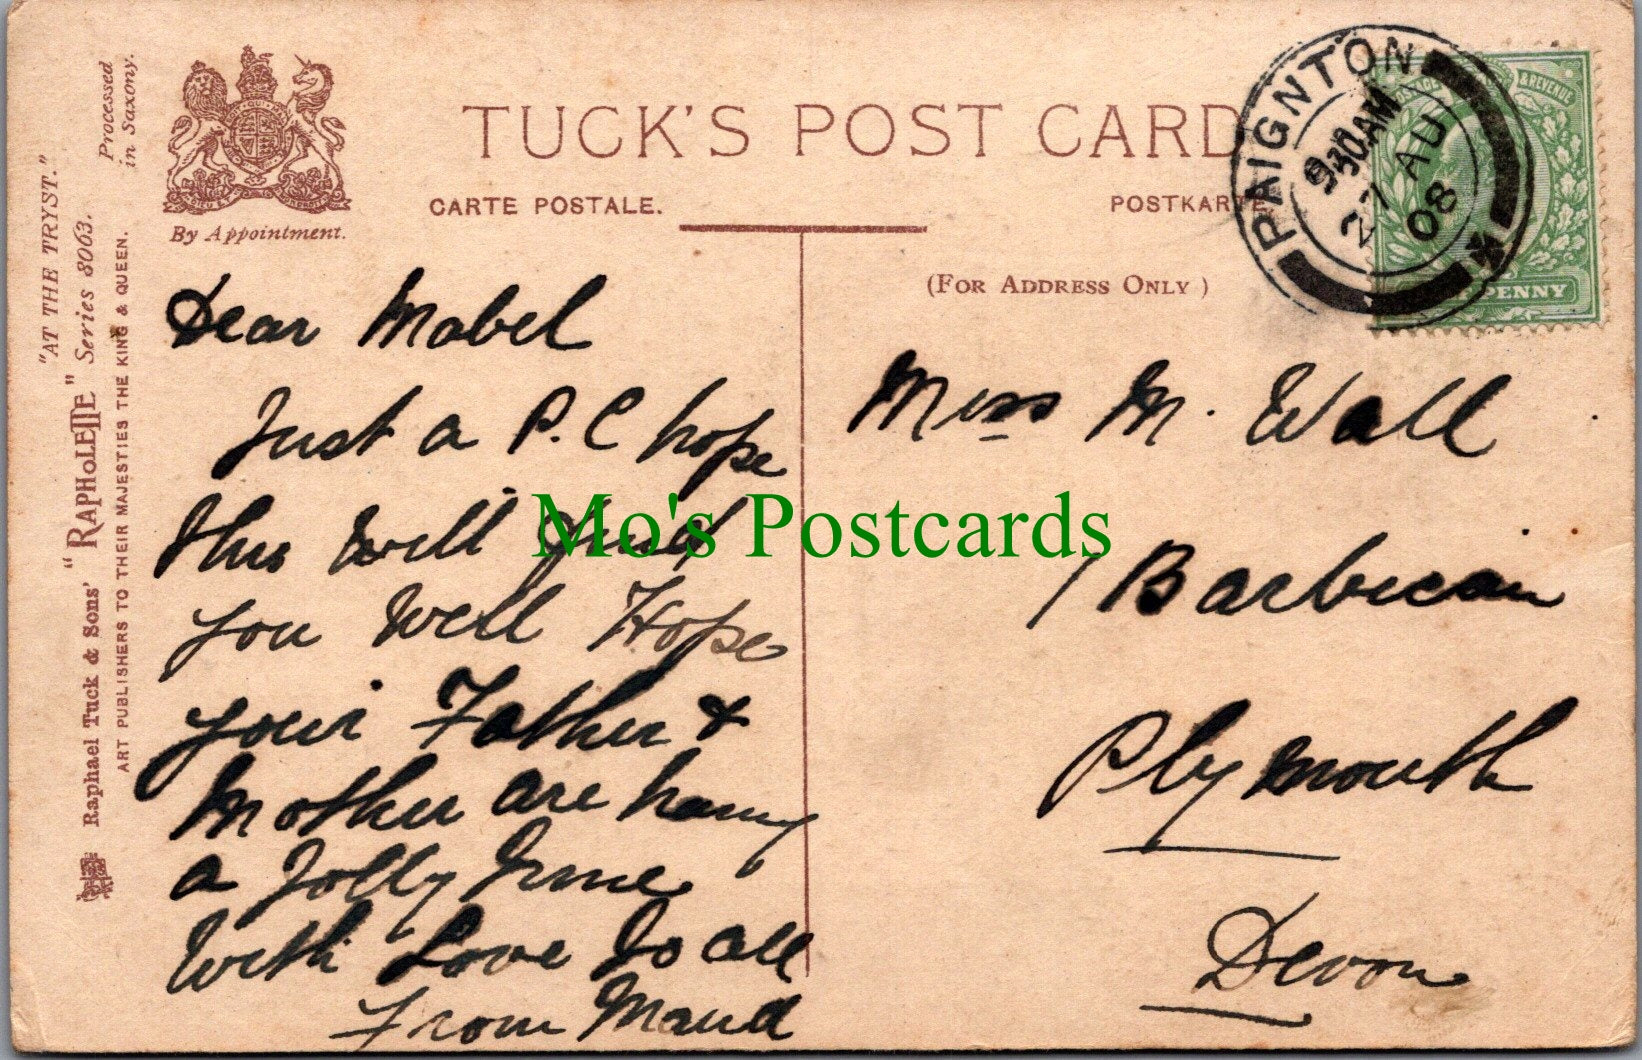 "AT THE TRYST."
Processed
in Saxony.
Raphael Tuck & Sons' "RAPHOLETTE" Series 8063.
ART PUBLISHERS TO THEIR MAJESTIES THE KING & QUEEN.
By Appointment.
TUCK'S POST CARD
CARTE POSTALE.
POSTKARTE
(FOR ADDRESS ONLY)
PAIGNTON
930AM
27 AU
08
& REVENUE
PENNY
Dear Mabel
Just a P.C hope
this will find
you well Hope
your Father &
Mother are having
a Jolly Time
With Love to all
From Maud
Miss M. Wall
7 Barbican
Plymouth
Devon
Mo's Postcards